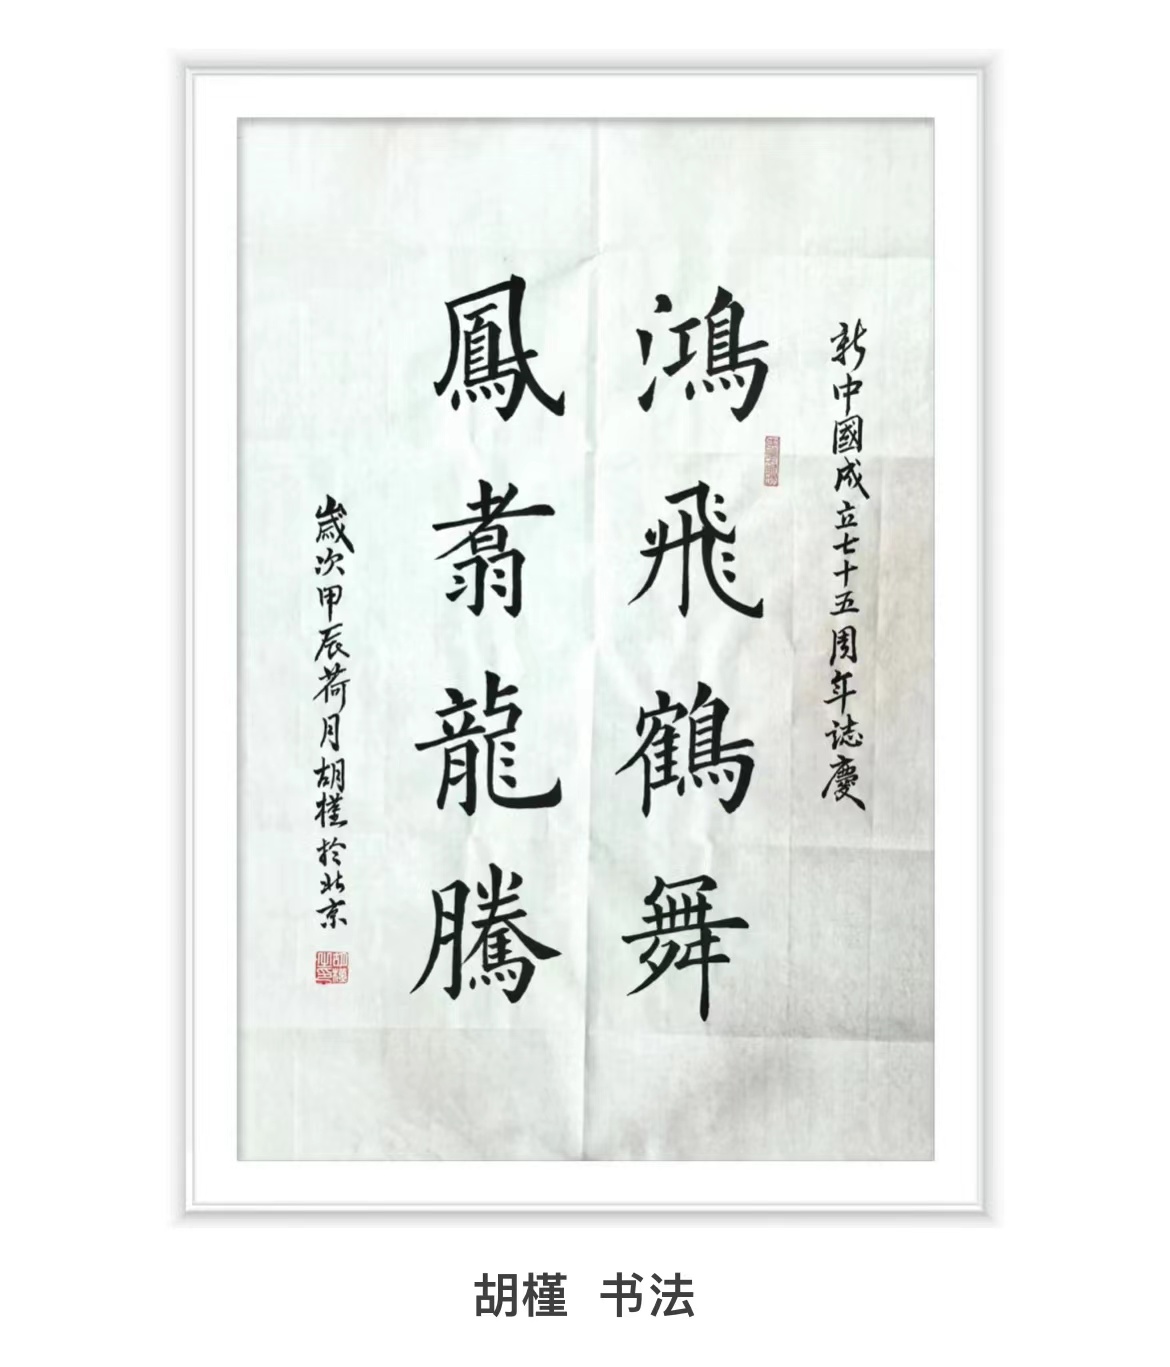 新中國成立七十五周年誌慶
鴻飛鶴舞
鳳翥龍騰
歲次甲辰荷月胡槿於北京
胡槿 书法